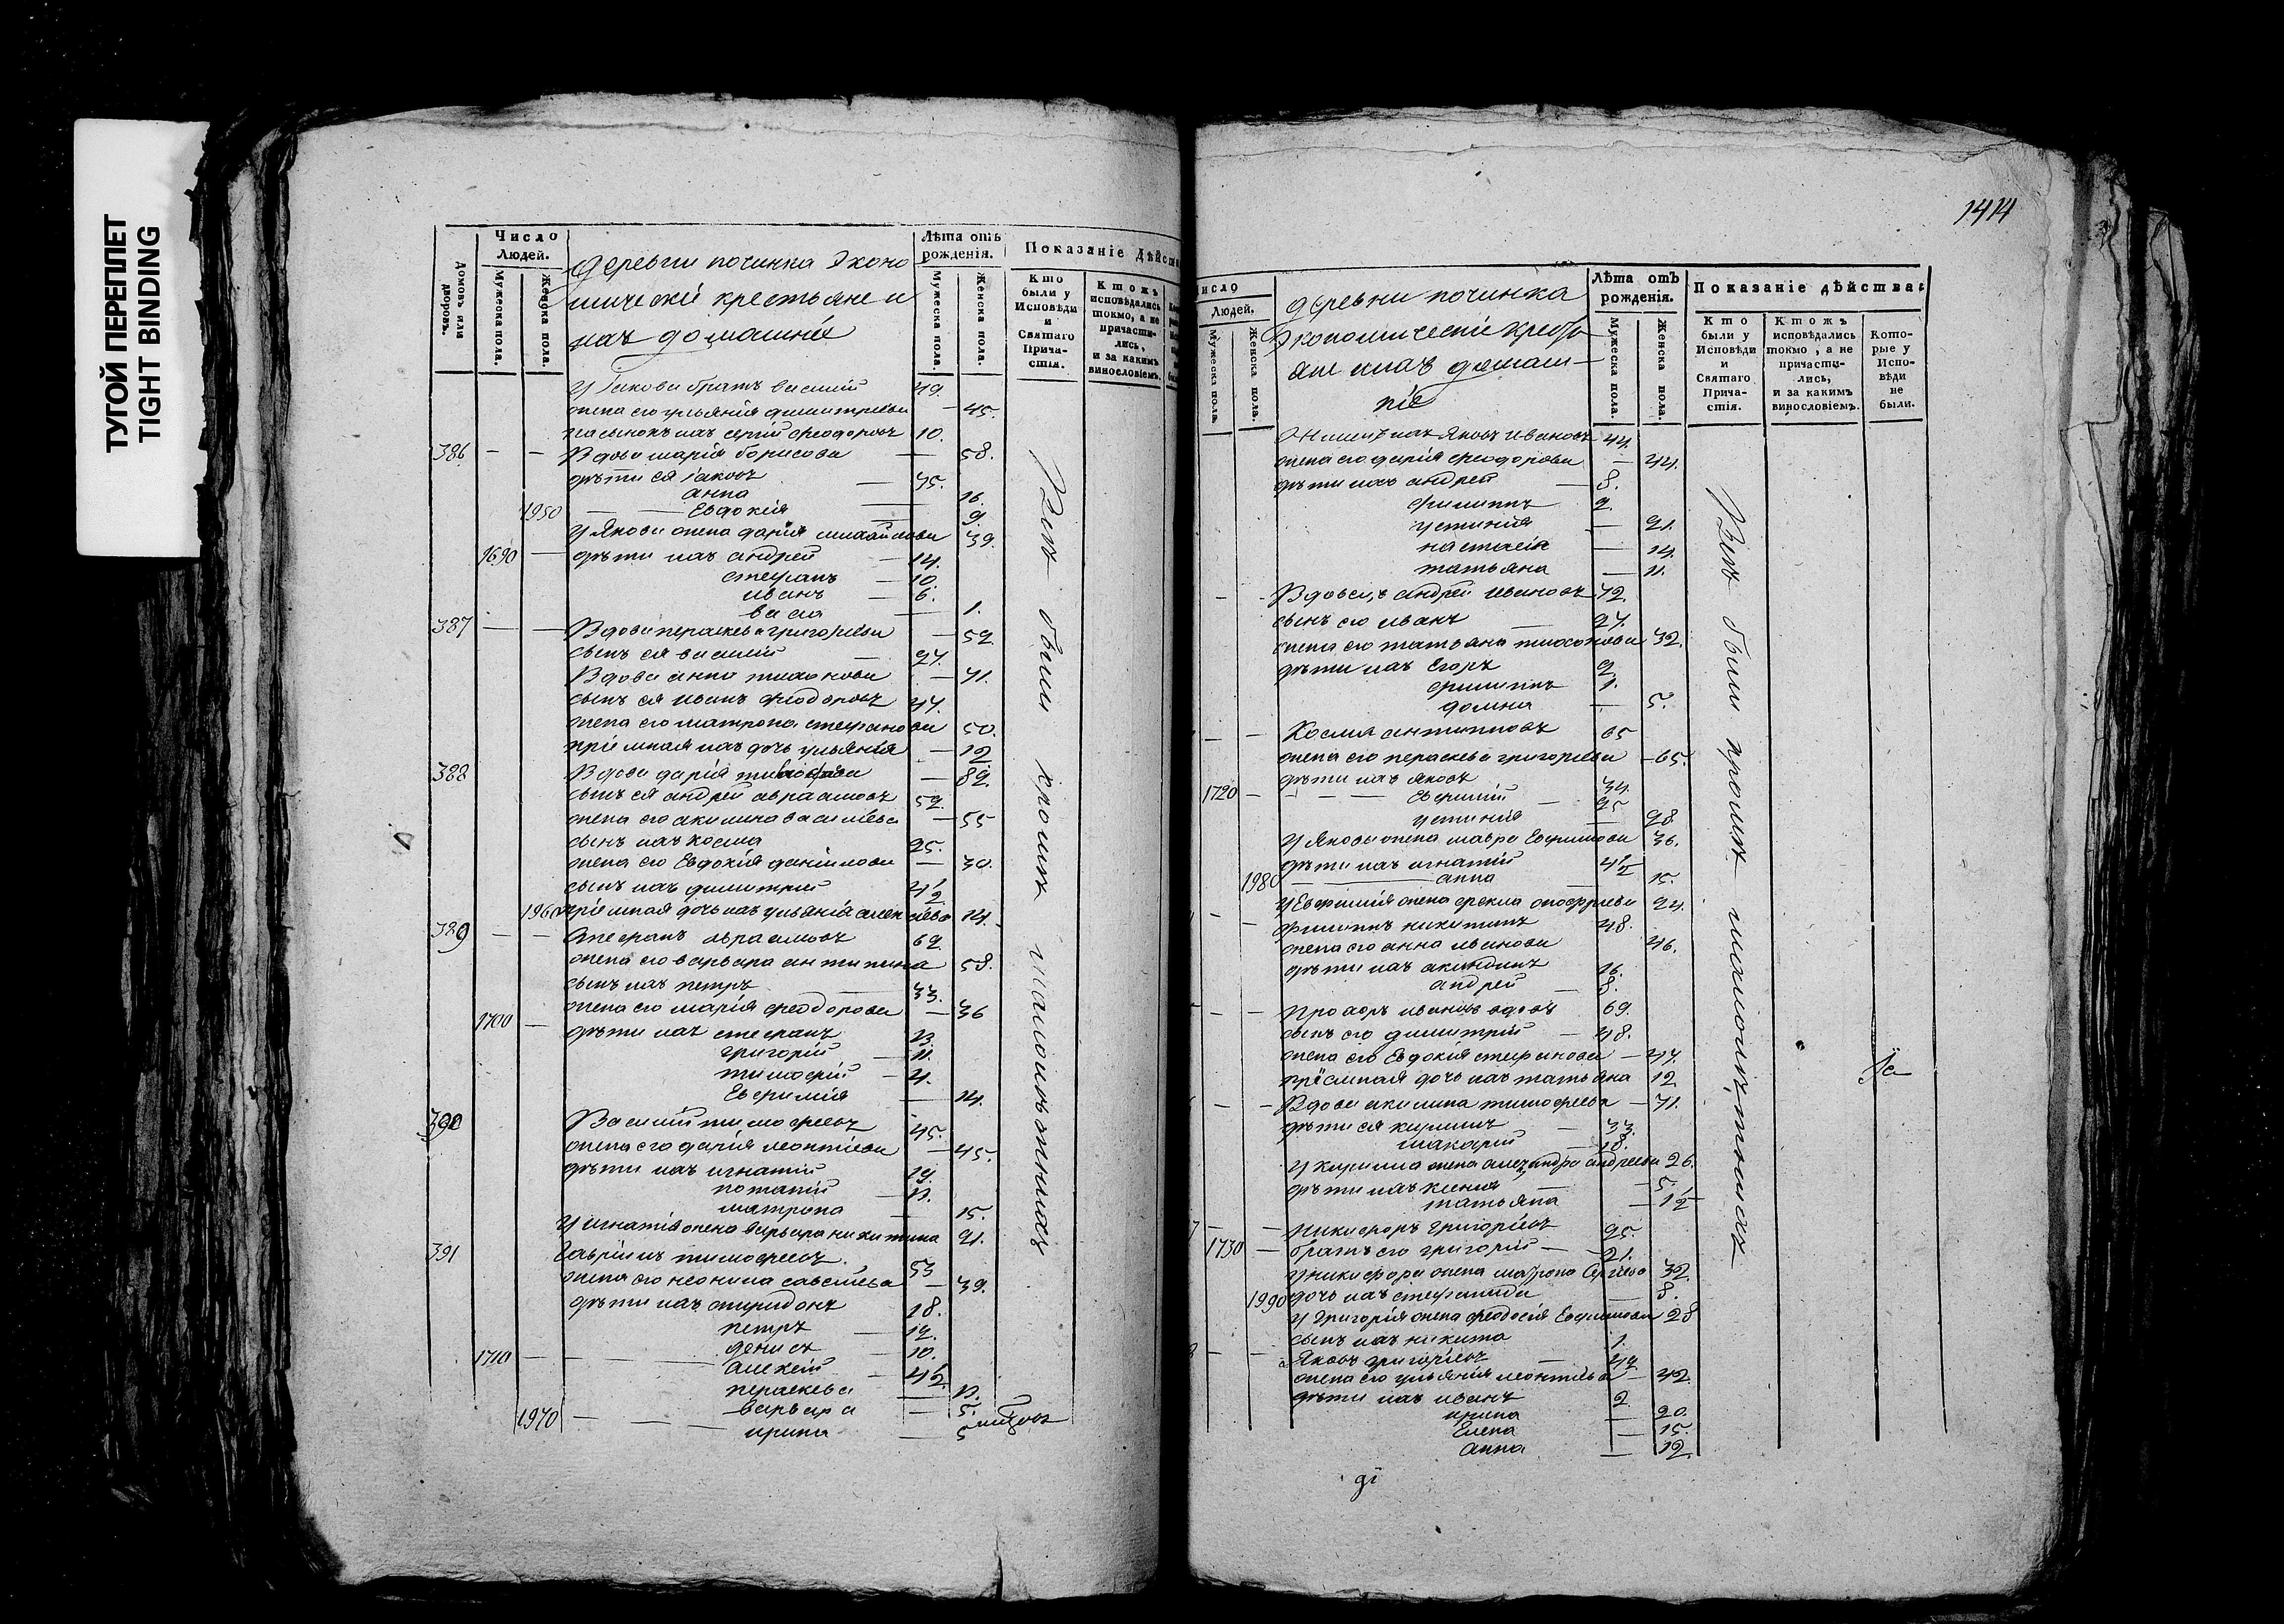 ТУГОЙ ПЕРЕПЛЕТ
TIGHT BINDING
Домовъ или дворовъ.
Число Людей.
Мужеска пола.
Женска пола.
деревни починка Эконо
мическiй крестьяне и
ихъ домашнiи
Лѣта отъ рожденiя.
Мужеска пола.
Женска пола.
Показанiе Дѣйств
Кто были у Исповѣди и Святаго Причастiя.
Ктожъ исповѣдались токмо, а не причастились, и за какимъ винословiемъ.
у Iакова братъ василий 49.
жена его ульянiя димитрiева 45.
пасынокъ ихъ сергiй феодоровъ 10.
386 Вдова марiя борисова 58.
дѣти ея Iаковъ 35.
анна 16.
1950 Евдокiя 9.
у Якова жена дарiя михайлова 39.
1690 дѣти ихъ андрей 14.
стефанъ 10.
иванъ 6.
васса 1.
387 Вдова параскева григорiева 52.
сынъ ея василiй 27.
Вдова анна тихонова 71.
сынъ ея иванъ феодоровъ 47.
жена его матрона стефанова 50.
прiемная ихъ дочь ульянiя 12
388 Вдова дарiя 82.
сынъ ея андрей авраамовъ 52.
жена его акилина василiева 55
сынъ ихъ косма 25.
жена его Евдокiя данiилова 30.
сынъ ихъ димитрiй 4 1/2
1960 прiемная дочь ихъ ульянiя 14.
389 Стефанъ авраамовъ 62.
жена его варвара антипина 58.
сынъ ихъ петръ 33.
жена его марiя феодорова 36
1700 дѣти ихъ стефанъ 13.
григорiй 11.
тимофiй 4.
Евфимiя 14.
390 Василiй тимофеевъ 45.
жена его дарiя леонтiева 45.
дѣти ихъ игнатiй 19.
потапiй 11.
матрона 15.
у игнатiя жена варвара никитина 21.
391 Гаврiилъ тимофеевъ 53
жена его неонила савелiева 39.
дѣти ихъ спиридонъ 18.
петръ 12.
денисъ 10.
1710 Алексiй 4 1/2
параскева 11.
варвара 5.
1970 ирина 5
Всѣ были кромѣ малолѣтнихъ
1414
Число Людей.
Мужеска пола.
Женска пола.
деревни починка
Экономическiе кресть
яне ихъ домаш-
нiе
Лѣта отъ рожденiя.
Мужеска пола.
Женска пола.
Показанiе дѣйства:
Кто были у Исповѣди и Святаго Причастiя.
Ктожъ исповѣдались токмо, а не причастились, и за какимъ винословiемъ.
Которые у Исповѣди не были.
ихъ Яковъ ивановъ 44.
жена его дарiя феодорова 44.
дѣти ихъ андрей 8.
филиппъ 2.
устинiя 21.
настасiя 14.
татьяна 11.
Вдовецъ андрей ивановъ 72.
сынъ его иванъ 27.
жена его татьяна тихонова 32.
дѣти ихъ Егоръ 2
филиппъ 1.
домна 5.
Косма антиповъ 65
жена его параскева григорiева 65.
дѣти ихъ яковъ 34.
1720 Евфимiй 25
устинiя 28
у Якова жена мавра Евфимова 36.
дѣти ихъ игнатiй 4 1/2
1980 анна 15.
у Евфимiя жена фекла 24.
филиппъ никитинъ 48.
жена его анна иванова 46.
дѣти ихъ акиндинъ 16.
андрей 8.
Прохоръ ивановъ вдовъ 69.
сынъ его димитрiй 48.
жена его Евдокiя стефанова 47.
прiемная дочь ихъ татьяна 12
Вдова акилина тимофеева 71.
дѣти ея кириллъ 33.
макарiй 18.
у кирилла жена александра андреева 26.
дѣти ихъ ксенiя 5.
татьяна 1 1/2
Никифоръ григорiевъ 25.
1730 братъ его григорiй 21.
у никифора жена матрона Сергiева 32.
1990 дочь ихъ стефанида 8.
у Григорiя жена феодосiя Евфимова 28
сынъ ихъ никита 1.
Яковъ григорiевъ 42
жена его ульянiя леонтiева 42
дѣти ихъ иванъ 2
ирина 20.
Елена 15.
анна 12.
Всѣ были кромѣ малолѣтнихъ